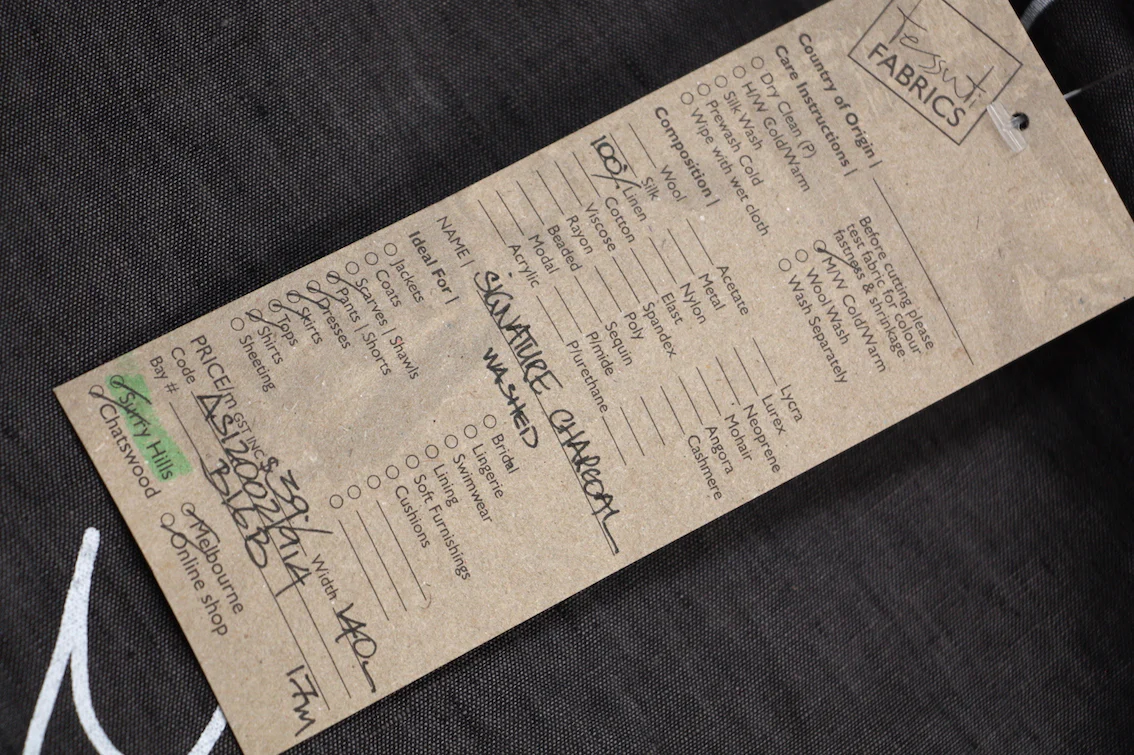 tessuti
FABRICS
Country of Origin |
Care Instructions |
Dry Clean (P)
H/W Cold/Warm
Silk Wash
Prewash Cold
Wipe with wet cloth
Before cutting please
test fabric for colour
fastness & shrinkage
M/W Cold/Warm
Wool Wash
Wash Separately
Composition |
Wool
Silk
100% Linen
Cotton
Viscose
Rayon
Beaded
Modal
Acrylic
Acetate
Metal
Nylon
Elast
Spandex
Poly
Sequin
P/mide
P/urethane
Lycra
Lurex
Neoprene
Mohair
Angora
Cashmere
NAME | SIGNATURE CHARCOAL
WASHED
Ideal For |
Jackets
Coats
Scarves | Shawls
Pants | Shorts
Dresses
Skirts
Tops
Shirts
Sheeting
Bridal
Lingerie
Swimwear
Lining
Soft Furnishings
Cushions
PRICE/m GST INC $39/ Width 140
Code AS12002/914
Bay # 17m
Surry Hills
Chatswood
Melbourne
Online shop